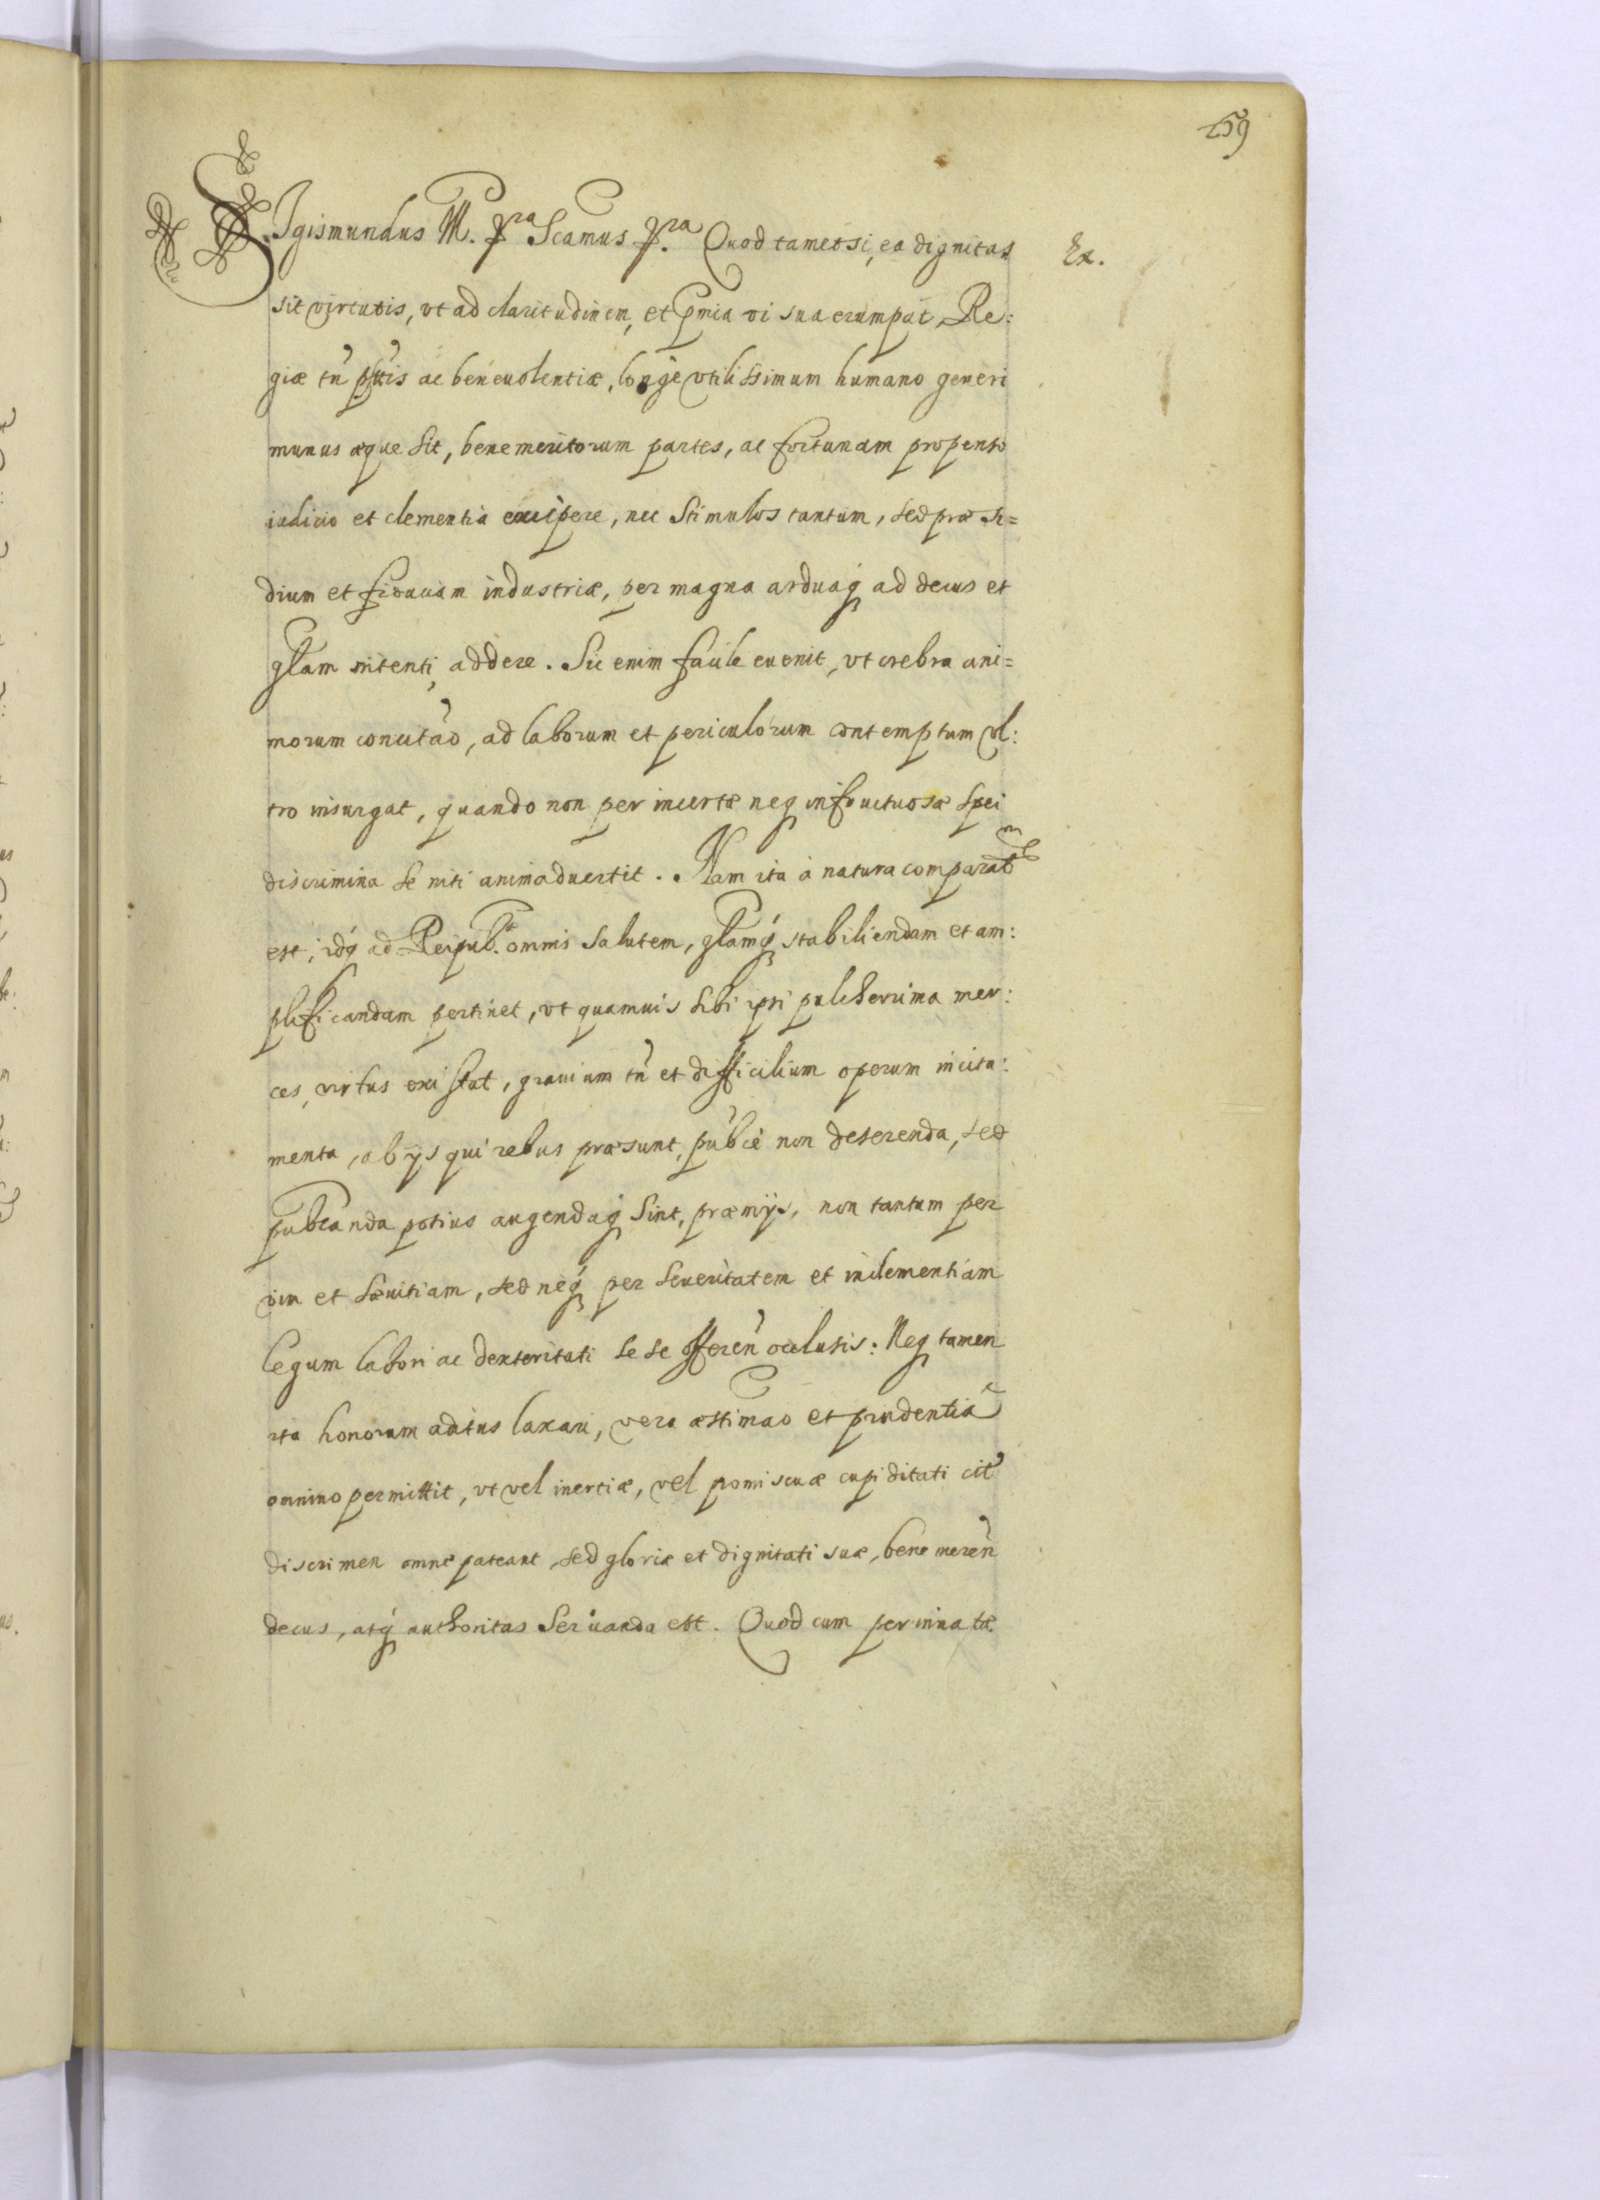 259
SJgismundus III. pra Scamus p.ra Quod tametsi, ea dignitas
Ex.
sit virtutis, vt ad claritudinem, et pmia vi sua erumpat, Re:
giæ tn ptis ac beneuolentiæ, longe vtilissimum humano generi
munus æque sit, benemeritorum partes, ac fortunam propenso
iudicio et clementia excipere, nec stimulos tantum, sed præsi=
dium et firmam industriæ, per magna arduaq ad decus et
glam nitenti, addere. Sic enim facile euenit, vt crebra ani=
morum concitao, ad laborum et periculorum contemptum vl:
tro insurgat, quando non per incertæ neq infructuosæ spei
discrimina se niti animaduertit. Nam ita a natura comparatum
est, idq ad Reipub. omnis salutem, glamq stabiliendam et am:
plificandam pertinet, vt quamuis sibi ipsi pulcherrima mer:
ces, virtus existat, grauium tn et difficilium operum incita:
menta, ab ijs qui rebus præsunt, publce non deserenda, sed
publcanda potius augendaq sint, præmijs, non tantum per
vim et sæuitiam, sed neq per seueritatem et inclementiam
legum labori ac dexteritati sese offeren occlusis: Neq tamen
ita honorum aditus laxari, vera æstimao et prudentia
omnino permittit, vt vel inertiæ, vel promiscuæ cupiditati cit
discrimen omne pateant, sed gloriæ et dignitati suæ, bene meren
decus, atq authoritas seruanda est. Quod cum per innatæ